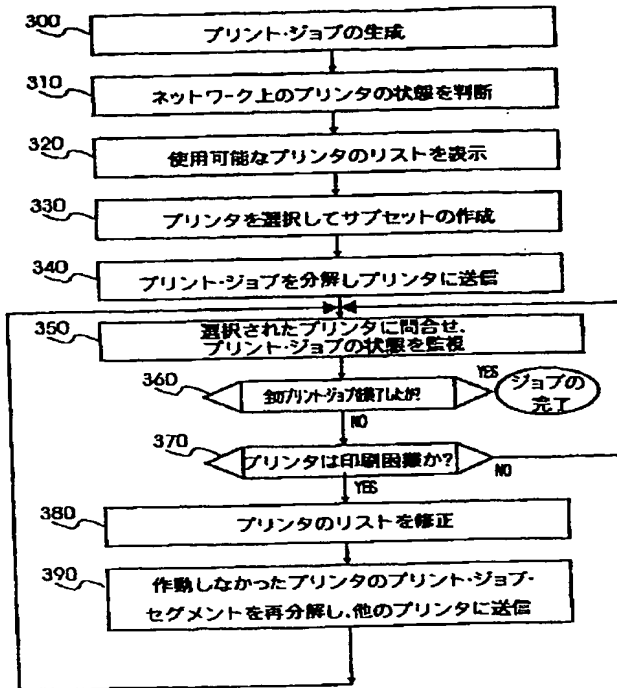 300
プリント・ジョブの生成
310
ネットワーク上のプリンタの状態を判断
320
使用可能なプリンタのリストを表示
330
プリンタを選択してサブセットの作成
340
プリント・ジョブを分解しプリンタに送信
350
選択されたプリンタに問合せ、
プリント・ジョブの状態を監視
360
全てプリント・ジョブを終了したか?
YES
ジョブの
完了
NO
370
プリンタは印刷困難か?
NO
YES
380
プリンタのリストを修正
390
作動しなかったプリンタのプリント・ジョブ・
セグメントを再分解し、他のプリンタに送信